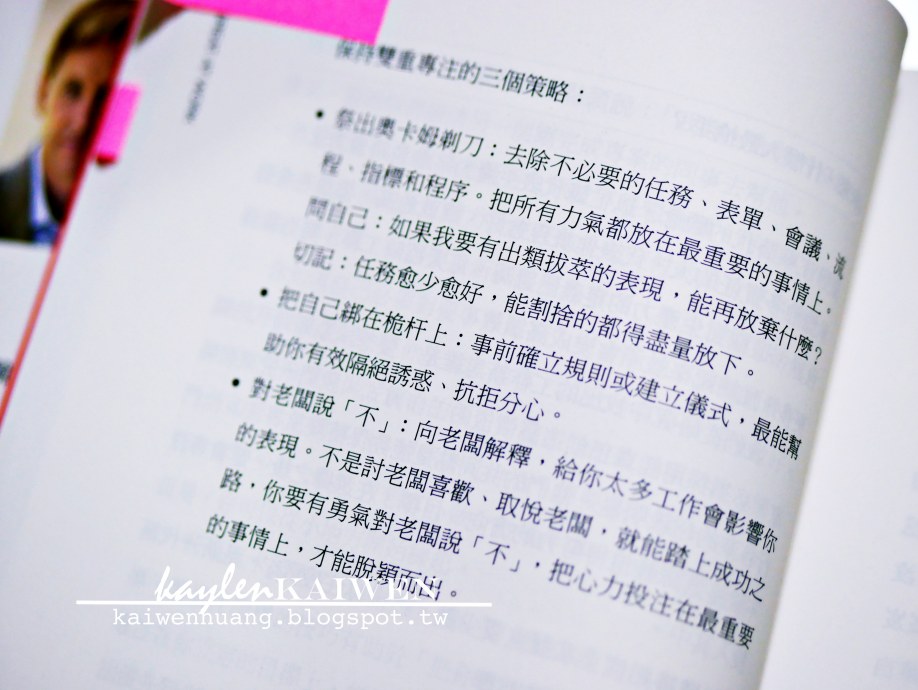 保持雙重專注的三個策略：
• 祭出奧卡姆剃刀：去除不必要的任務、表單、會議、流
程、指標和程序。把所有力氣都放在最重要的事情上。
問自己：如果我要有出類拔萃的表現，能再放棄什麼？
切記：任務愈少愈好，能割捨的都得盡量放下。
• 把自己綁在桅杆上：事前確立規則或建立儀式，最能幫
助你有效隔絕誘惑、抗拒分心。
• 對老闆說「不」：向老闆解釋，給你太多工作會影響你
的表現。不是討老闆喜歡、取悅老闆，就能踏上成功之
路，你要有勇氣對老闆說「不」，把心力投注在最重要
的事情上，才能脫穎而出。
kaylenKAIWEN
kaiwenhuang.blogspot.tw